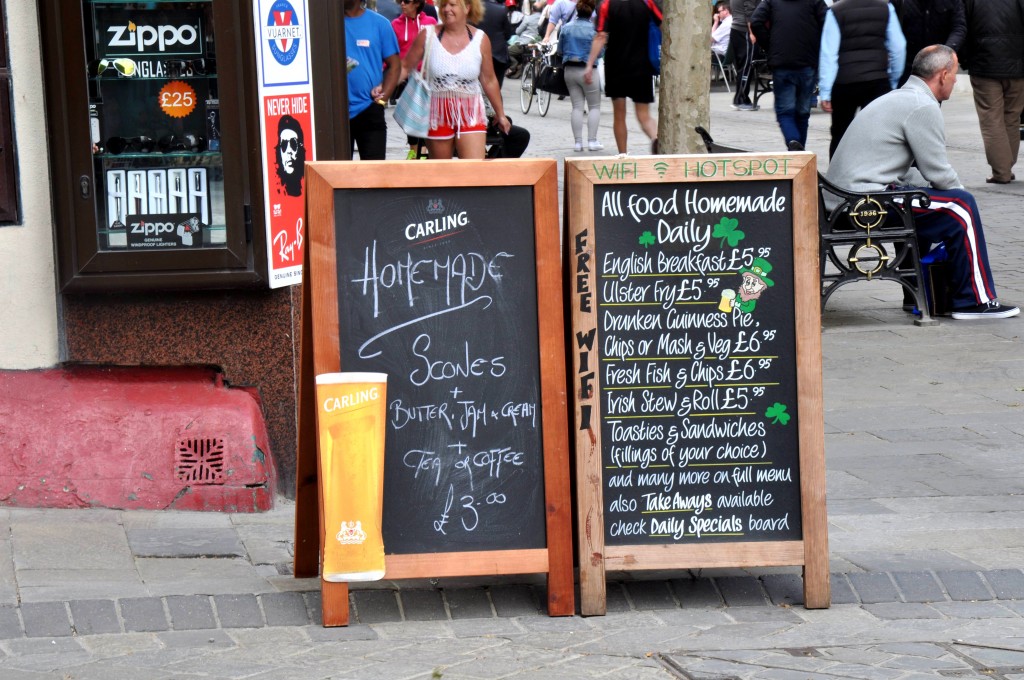 zippo
SUNGLASSES
£25
zippo
GENUINE
WINDPROOF LIGHTERS
VUARNET
NEVER HIDE
Ray-B
GENUINE
CARLING
HOMEMADE
SCONES
+
BUTTER, JAM & CREAM
+
TEA OR COFFEE
£3.00
CARLING
WIFI HOTSPOT
FREE WIFI
All food Homemade
Daily
English Breakfast £5.95
Ulster Fry £5.95
Drunken Guinness Pie,
Chips or Mash & Veg £6.95
Fresh Fish & Chips £6.95
Irish Stew & Roll £5.95
Toasties & Sandwiches
(fillings of your choice)
and many more on full menu
also Take Aways available
check Daily Specials board
1936